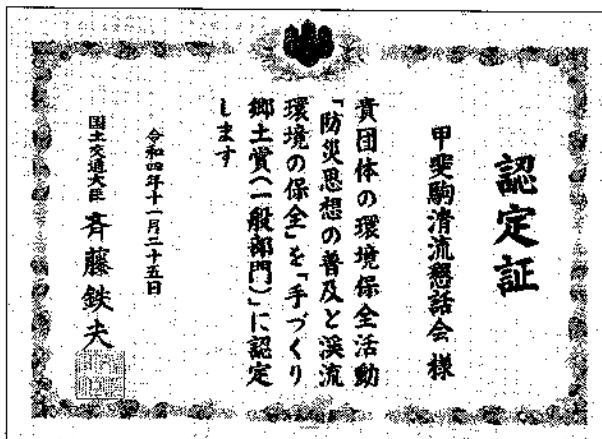 認定証
甲斐駒清流懇話会 様
貴団体の環境保全活動
「防災思想の普及と渓流
環境の保全」を「手づくり
郷土賞(一般部門)」に認定
します
令和四年十一月二十五日
国土交通大臣 斉藤鉄夫